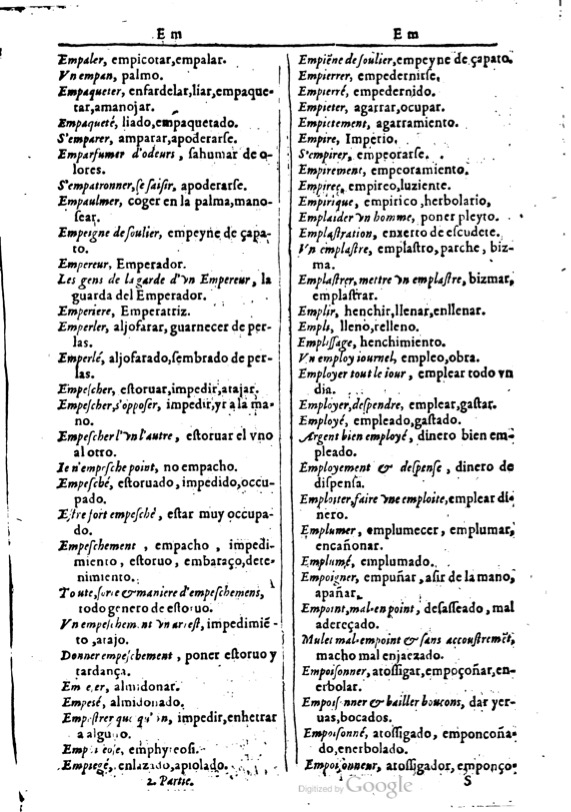 E m
Empaler, empicotar,empalar.
Vn empan, palmo.
Empaqueter, enfardelar,liar,empaque-
tar,amanojar.
Empaqueté, liado,empaquetado.
S'emparer, amparar,apoderarſe.
Emparfumer d'odeurs, ſahumar de o-
lores.
S'empatronner,ſe ſaiſir, apoderarſe.
Empaulmer, coger en la palma,mano-
ſear.
Empeigne de ſoulier, empeyne de çapa-
to.
Empereur, Emperador.
Les gens de la garde d'vn Empereur, la
guarda del Emperador.
Emperiere, Emperatriz.
Emperler, aljofarar, guarnecer de per-
las.
Emperlé, aljofarado,ſembrado de per-
las.
Empeſcher, eſtoruar,impedir,atajar.
Empeſcher,s'oppoſer, impedir,yr a la ma-
no.
Empeſcher l'vn l'autre, eſtoruar el vno
al otro.
Ie n'empeſche point, no empacho.
Empeſché, eſtoruado, impedido,occu-
pado.
Eſtre fort empeſché, eſtar muy occupa-
do.
Empeſchement, empacho, impedi-
miento, eſtoruo, embaraço,dete-
nimiento.
Toute,ſorte & maniere d'empeſchemens,
todo genero de eſtoruo.
Vn empeſchement vn arreſt, impedimiē-
to,atajo.
Donner empeſchement, poner eſtoruo y
tardança.
almidonar.
Empeſé, almidonado.
impedir,enhetrar
a alguno.
emphyteoſi.
Empiegé, enlazado,apiolado.
2. Partie.
E m
Empiēne de ſoulier,empeyne de çapato.
Empierrer, empedernirſe.
Empierré, empedernido.
Empieter, agarrar,ocupar.
Empietement, agarramiento.
Empire, Imperio.
S'empirer, empeorarſe.
Empirement, empeoramiento.
Empiree, empireo,luziente.
Empirique, empirico,herbolario.
Emplaider vn homme, poner pleyto.
Emplaſtration, enxerto de eſcudete.
Vn emplaſtre, emplaſtro,parche, biz-
ma.
Emplaſtrer,mettre vn emplaſtre, bizmar,
emplaſtrar.
Emplir, henchir,llenar,enllenar.
Empli, lleno,relleno.
Empliſſage, henchimiento.
Vn employ iournel, empleo,obra.
Employer tout le iour, emplear todo vn
dia.
Employer,deſpendre, emplear,gaſtar.
Employé, empleado,gaſtado.
Argent bien employé, dinero bien em-
pleado.
Employement & deſpenſe, dinero de
diſpenſa.
Emploiter,faire vne emploite,emplear di-
nero.
Emplumer, emplumecer, emplumar,
encañonar.
Emplumé, emplumado.
Empoigner, empuñar, aſir de la mano,
apañar.
Empoint,mal-en point, deſaſſeado, mal
adereçado.
Mulet mal-empoint & ſans accouſtremēt,
macho mal enjaezado.
Empoiſonner, atoſſigar, empoçoñar,en-
erbolar.
Empoiſonner & bailler boucons, dar yer-
uas,bocados.
Empoiſonné, atoſſigado, emponcoña-
do,enerbolado.
Empoiſonneur, atoſſigador, emponço-
S
Digitized by Google